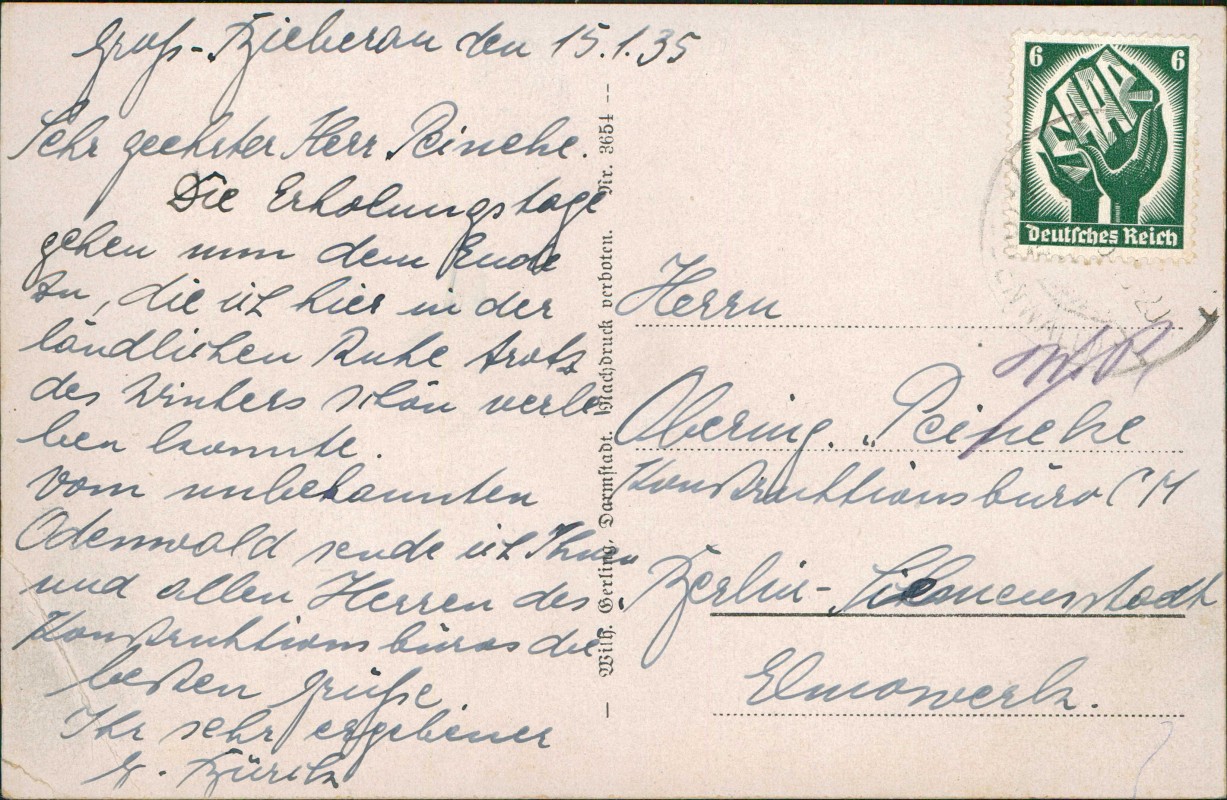 Groß-Bieberau den 15.1.35
Sehr geehrter Herr Reineke.
Die Erholungstage
gehen nun dem Ende
zu, die ich hier in der
ländlichen Ruhe trotz
des Winters schön verle
ben konnte.
Vom unbekannten
Odenwald sende ich Ihnen
und allen Herren des
Konstruktionsbüros die
besten Grüße
Ihr sehr ergebener
Wilh. Gerling, Darmstadt. Nachdruck verboten. Nr. 3654
6 6
SAAR
Deutsches Reich
Herrn
Obering. Reineke
Konstruktionsbüro CM
Berlin-Siemensstadt
Elmowerk.